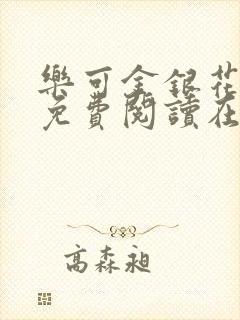 樂可金銀花
免費閱讀在
高森昶